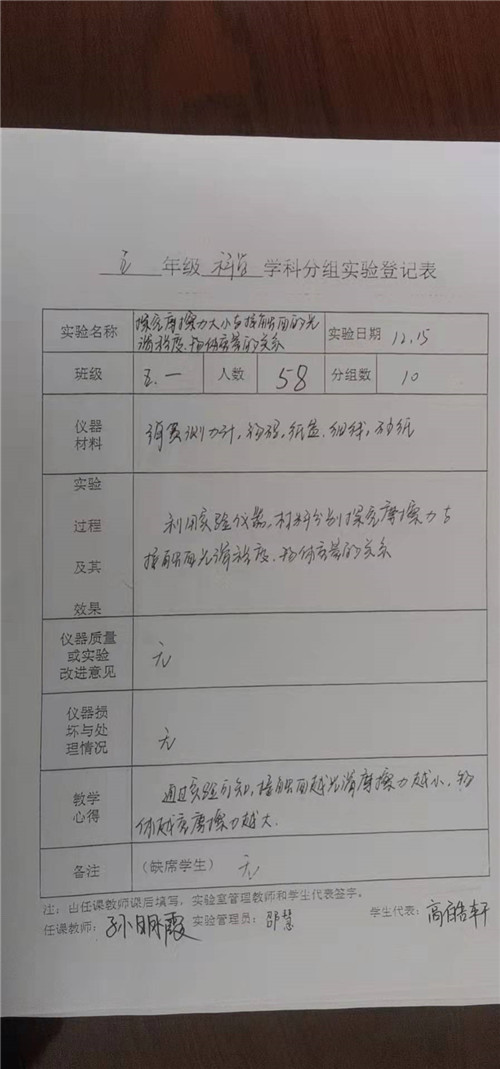 五 年级 科学 学科分组实验登记表
实验名称 探究摩擦力大小与接触面的光滑程度、物体重量的关系 实验日期 12.15
班级 五.一 人数 58 分组数 10
仪器材料 弹簧测力计、纸盒、细绳、砂纸
实验过程及其效果 利用实验仪器、材料分别探究摩擦力与
接触面光滑程度、物体重量的关系
仪器质量或实验改进意见 无
仪器损坏与处理情况 无
教学心得 通过实验可知,接触面越光滑摩擦力越小,物
体越重摩擦力越大.
备注 (缺席学生) 无
注:由任课教师课后填写,实验室管理教师和学生代表签字。
任课教师:孙明霞 实验管理员:邵慧 学生代表:高皓轩